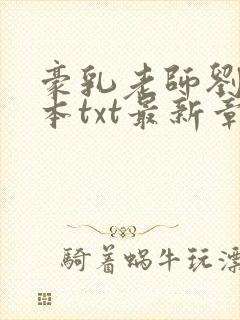 豪乳老師劉
本txt最新章
騎着蝸牛玩漂